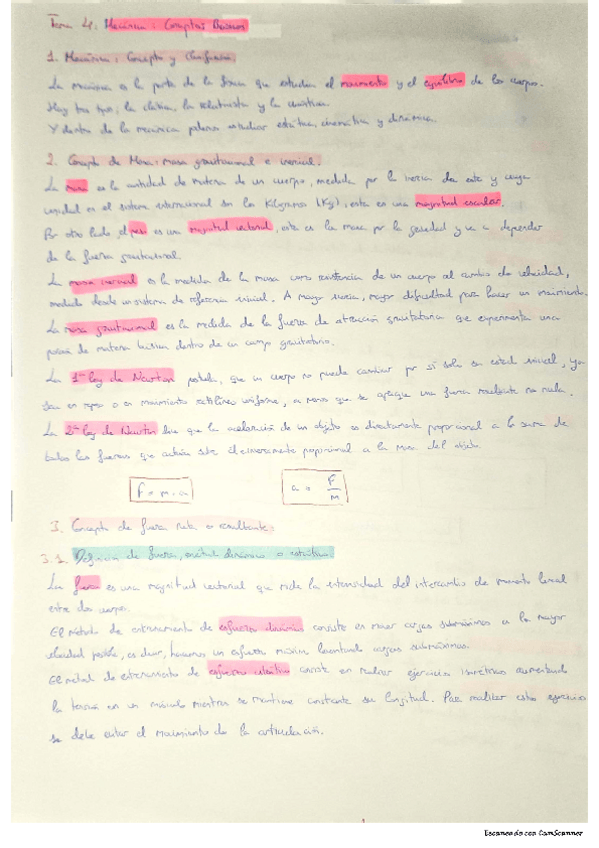 Tema 4: Mecánica: Conceptos Básicos
1. Mecánica: Concepto y Clasificación:
La mecánica es la parte de la física que estudia el movimiento y el equilibrio de los cuerpos.
Hay tres tipos; la clásica, la relativista y la cuántica.
Y dentro de la mecánica podemos estudiar estática, cinemática y dinámica.
2. Concepto de Masa: masa gravitacional e inercial.
La masa es la cantidad de materia de un cuerpo, medida por la inercia de este y cuya
unidad en el sistema internacional son los Kilogramos (Kg), esta es una magnitud escalar.
Por otro lado, el peso es una magnitud vectorial, este es la masa por la gravedad y va a depender
de la fuerza gravitacional.
La masa inercial es la medida de la masa como resistencia de un cuerpo al cambio de velocidad,
medido desde un sistema de referencia inicial. A mayor inercia, mayor dificultad para hacer un movimiento.
La masa gravitacional es la medida de la fuerza de atracción gravitatoria que experimenta una
porción de materia dentro de un campo gravitatorio.
La 1ª ley de Newton postula, que un cuerpo no puede cambiar por sí solo su estado inicial, ya
sea en reposo o en movimiento rectilíneo uniforme, a menos que se aplique una fuerza resultante no nula.
La 2ª ley de Newton dice que la aceleración de un objeto es directamente proporcional a la suma de
todas las fuerzas que actúan sobre él e inversamente proporcional a la masa del objeto.
F = m · a
a = F/m
3. Concepto de fuerza neta o resultante:
3.1. Definición de fuerza, método dinámico o estático:
La fuerza es una magnitud vectorial que mide la intensidad del intercambio de momento lineal
entre dos cuerpos.
El método de entrenamiento de esfuerzo dinámico consiste en mover cargas submáximas a la mayor
velocidad posible, es decir, hacemos un esfuerzo máximo levantando cargas submáximas.
El método de entrenamiento de esfuerzo estático consiste en realizar ejercicios isométricos aumentando
la tensión en un músculo mientras se mantiene constante su longitud. Para realizar estos ejercicios
se debe evitar el movimiento de la articulación.
1
Escaneado con CamScanner